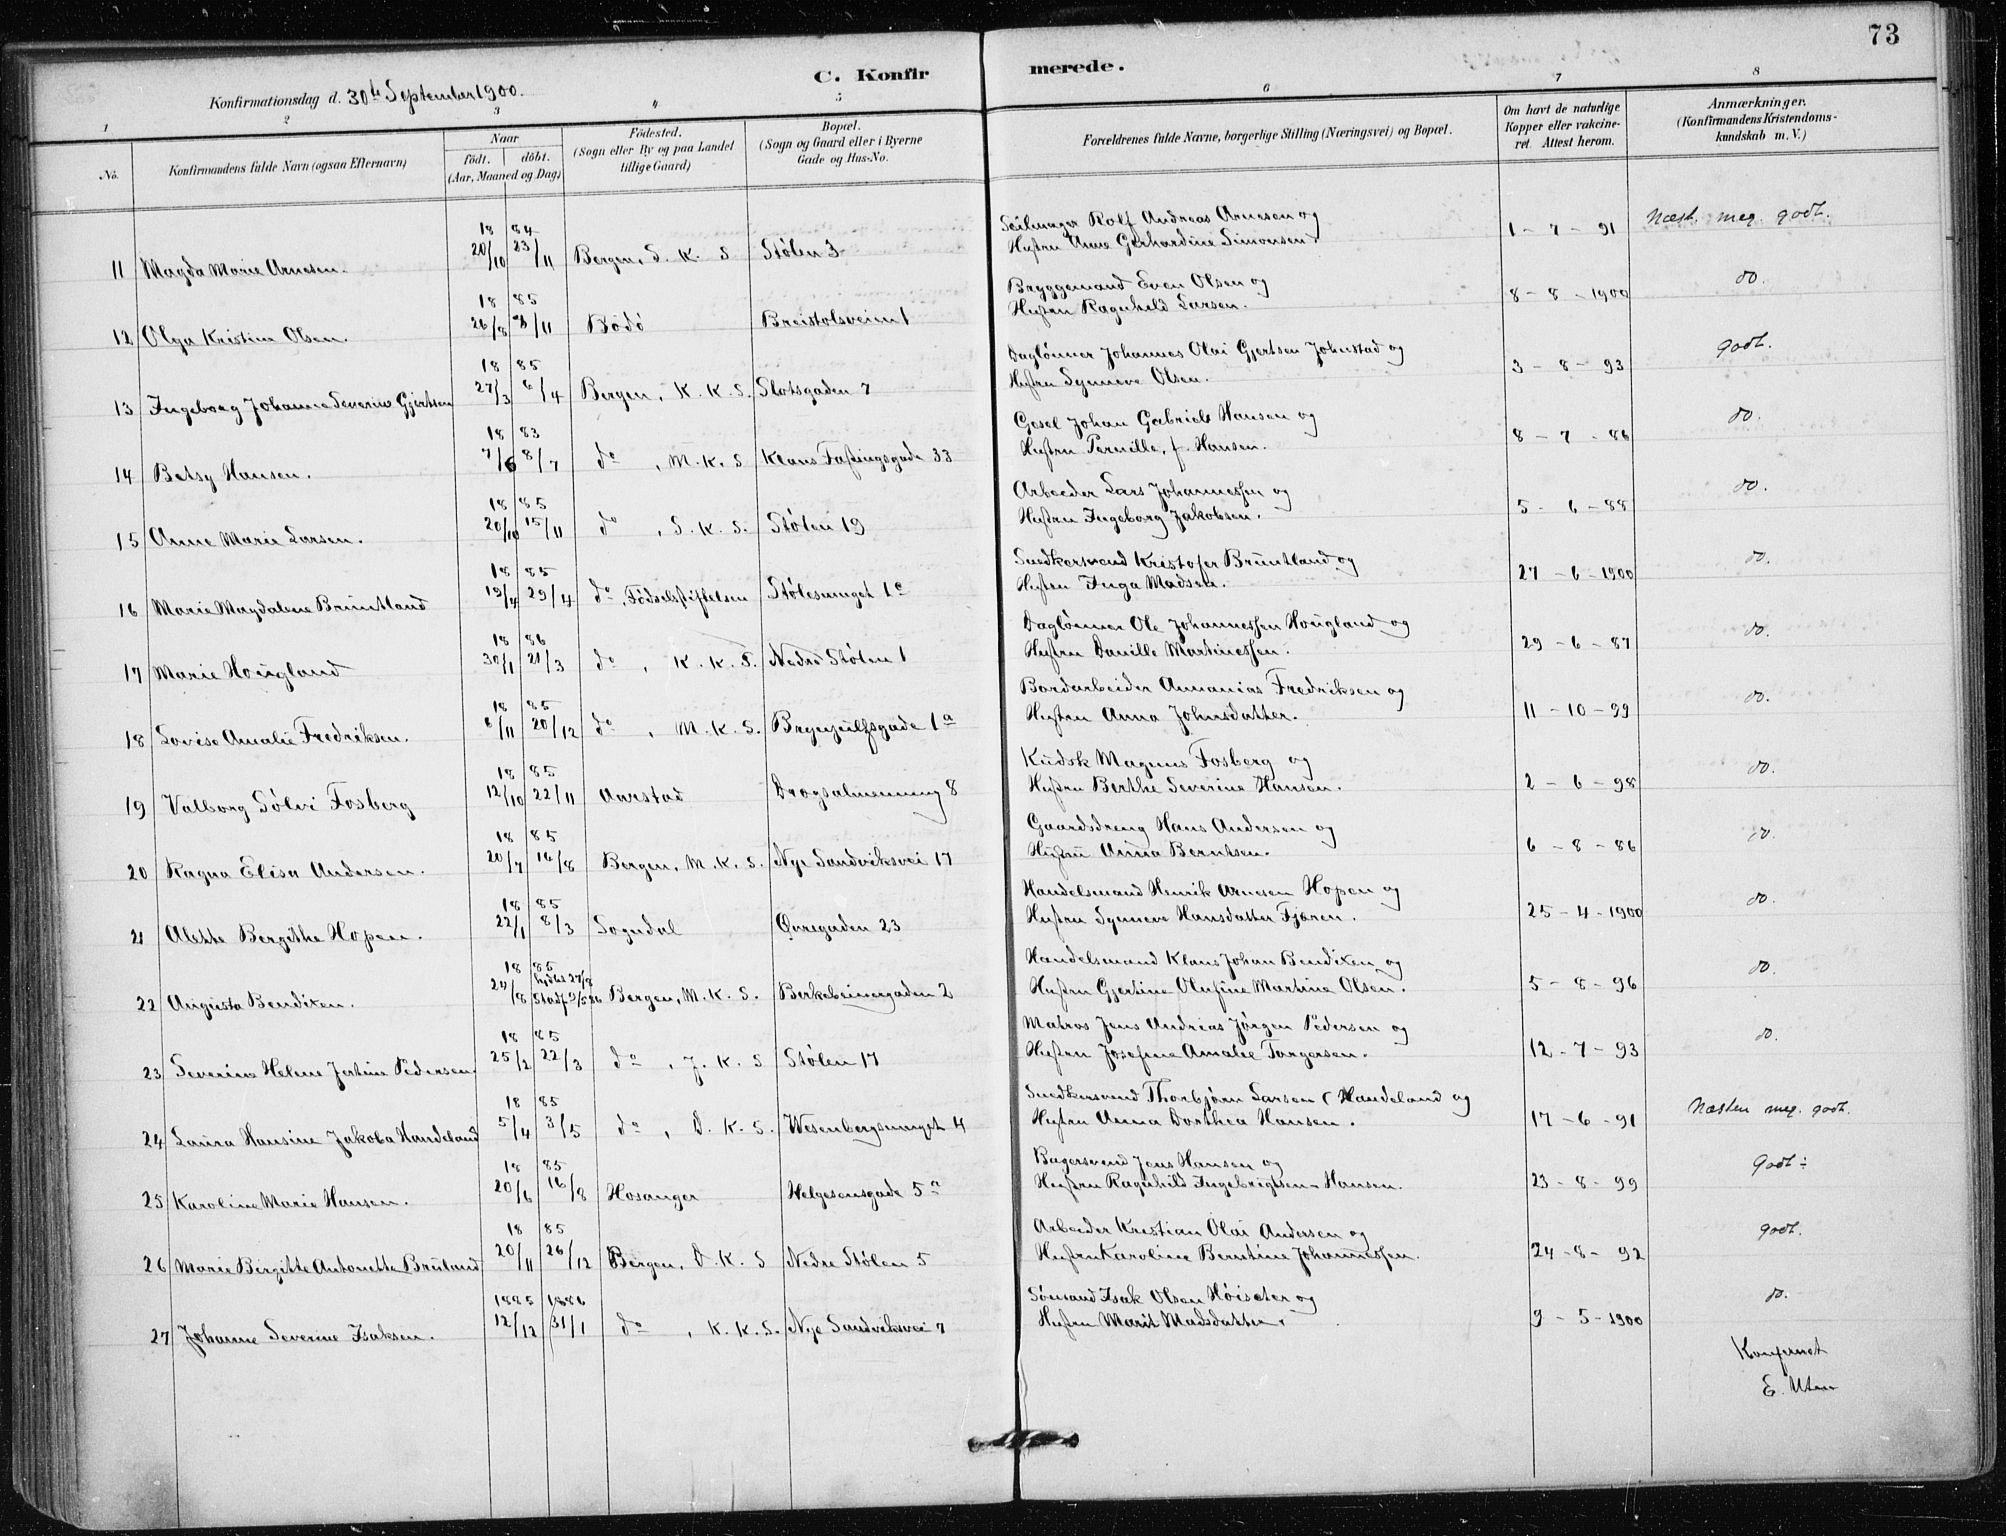 73
C. Konfirmerede.
Konfirmationsdag d. 30te September 1900.
1 2 3 4 5 6 7 8
No. Konfirmandens fulde Navn (ogsaa Efternavn) Naar født. døbt. (Aar, Maaned og Dag) Fødested. (Sogn eller By og paa Landet tillige Gaard) Bopæl. (Sogn og Gaard eller i Byerne Gade og Hus-No. Forældrenes fulde Navne, borgerlige Stilling (Næringsvei) og Bopæl. Om havt de naturlige Kopper eller vakcineret. Attest herom. Anmærkninger. (Konfirmandens Kristendomskundskab m. V.)
18 84 Seilmager Rolf Andreas Arnesen og
11 Magda Marie Arnesen. 20/10 23/11 Bergen, D. K. S Stølen 3 Hustru Anne Gerhardine Simonsen. 1 - 7 - 91 Næst. meg. godt.
18 85 Bryggemand Even Olsen og
12 Olga Kristine Olsen. 26/8 8/11 Bodö Breistolsveien 1 Hustru Ragnhild Larsen. 8 - 8 - 1900 do.
18 85 Daglönner Johannes Olai Gjertsen Johnstad og
13 Ingeborg Johanne Severine Gjertsen 27/3 6/4 Bergen, K. K. S. Slotsgaden 7 Hustru Synneve Olsen. 3 - 8 - 93 godt.
18 83 Gesel Johan Gabriels Hansen og
14 Betsy Hansen. 7/6 8/7 do, M. K. S Klaus Fastingsgade 33 Hustru Pernille, f. Hansen. 8 - 7 - 86 do.
18 85 Arbeider Lars Johannessen og
15 Anne Marie Larsen. 20/10 15/11 do, D. K. S. Stølen 19 Hustru Ingeborg Jakobsen. 5 - 6 - 88 do.
18 85 Snedkersvend Kristofer Bruntland og
16 Marie Magdalene Bruntland 19/4 29/4 do, Födselsstiftelsen Stølesmuget 1c Hustru Inga Madsen. 27 - 6 - 1900 do.
18 86 Daglönner Ole Johannessen Hougland og
17 Marie Hougland 30/1 21/3 do, K. K. S. Nedre Stølen 1 Hustru Danille Martinessen. 29 - 6 - 87 do.
18 85 Bordarbeider Annanias Fredriksen og
18 Lovise Amalie Fredriksen. 6/11 20/12 do, M. K. S. Brynjulfsgade 1a Hustru Anna Johnsdatter. 11 - 10 - 99 do.
18 85 Kudsk Magnus Fosberg og
19 Valborg Sölvi Fosberg 12/10 22/11 Aarstad Dræsalmenning 8 Hustru Berthe Severine Hansen. 2 - 6 - 98 do.
18 85 Gaardsdreng Hans Andersen og
20 Ragna Elisa Andersen. 20/7 16/8 Bergen, M. K. S. Nye Sandviksvei 17 Hustru Anna Berntsen. 6 - 8 - 86 do.
18 85 Handelsmand Henrik Arnesen Hopen og
21 Alette Bergithe Hopen. 22/1 8/3 Sogndal Øvregaden 23 Hustru Synneve Hansdatter Fjæren. 25 - 4 - 1900 do.
18 85 Handelsmand Klaus Johan Bendixen og
22 Augusta Bendixen. 24/8 hjdbt 27/8 Stadf. Bergen, M. K. S. Berkebeinergaden 2 Hustru Gjertine Olufine Martine Olsen. 5 - 8 - 96 do.
18 85 Matros Jens Andreas Jørgen Pedersen og
23 Severine Helene Jertine Pedersen. 25/2 22/3 do, J. K. S Stølen 17 Hustru Josefine Amalie Torgersen. 12 - 7 - 93 do.
18 85 Snedkersvend Thorbjørn Larsen (Handeland og
24 Laura Hansine Jakoba Handeland 5/4 3/5 do, D. K. S. Wesenbergsmuget 4 Hustru Anna Dorthea Hansen. 17 - 6 - 91 Næsten meg. godt.
18 85 Bagersvend Jens Hansen og
25 Karoline Marie Hansen. 20/6 16/8 Hosanger Helgesensgade 5a Hustru Ragnhild Ingebrigtsen-Hansen. 23 - 8 - 99 Godt ÷
18 85 Arbeider Kristian Olai Andersen og
26 Marie Birgitte Antonette Bruland 20/11 26/12 Bergen, D. K. S Nedre Stølen 5 Hustru Karoline Berntine Johannessen. 24 - 8 - 92 godt.
1885 1886 Sömand Isak Olsen Höiseter og
27 Johanne Severine Isaksen. 12/12 31/1 do, K. K. S. Nye Sandviksvei 7 Hustru Marit Madsdatter. 9 - 5 - 1900 do.
Konferert
E.